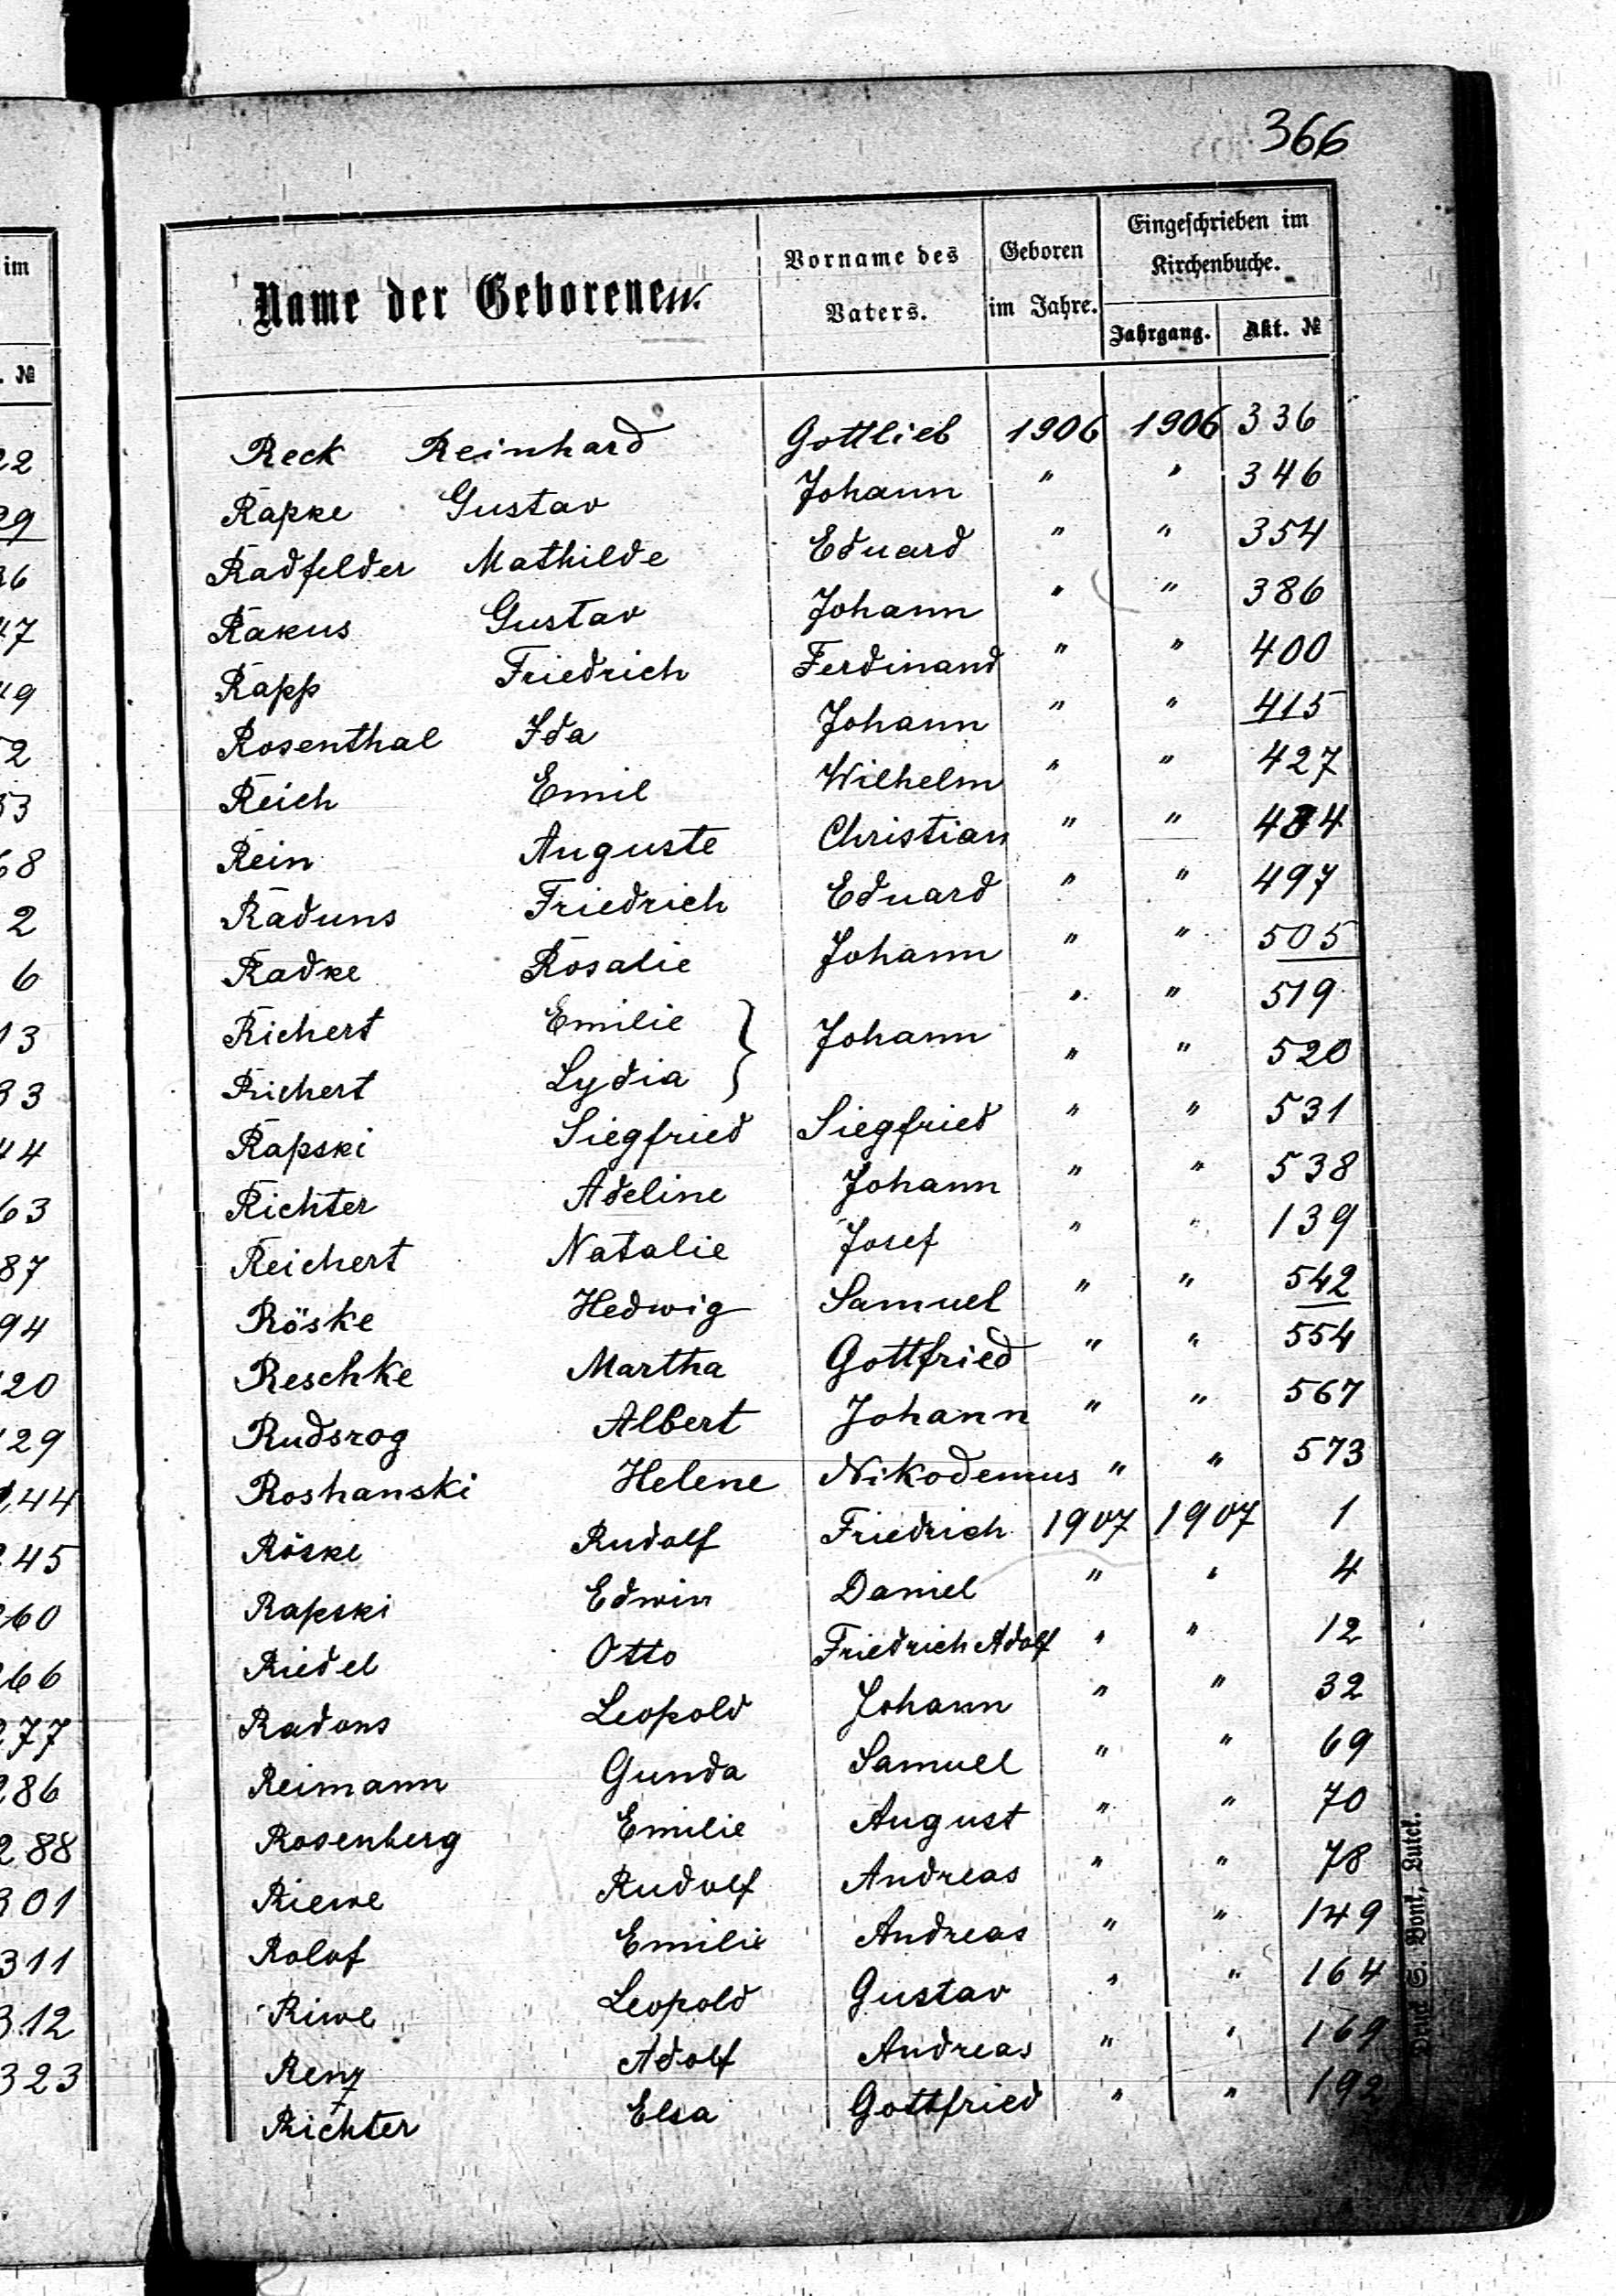 366
im
. №
22
29
36
47
49
52
53
68
2
6
13
33
44
63
87
94
120
129
144
245
260
266
277
286
288
301
311
312
323
Name der Geborenen.
Vorname des Vaters.
Geboren im Jahre.
Eingeschrieben im Kirchenbuche.
Jahrgang. Akt. №
Reck Reinhard Gottlieb 1906 1906 336
Rapke Gustav Johann " " 346
Radfelder Mathilde Eduard " " 354
Rakus Gustav Johann " " 386
Rapp Friedrich Ferdinand " " 400
Rosenthal Ida Johann " " 415
Reich Emil Wilhelm " " 427
Rein Auguste Christian " " 484
Raduns Friedrich Eduard " " 497
Radke Rosalie Johann " " 505
Richert Emilie } Johann " " 519
Richert Lydia } " " 520
Rapski Siegfried Siegfried " " 531
Richter Adeline Johann " " 538
Reichert Natalie Josef " " 139
Röske Hedwig Samuel " " 542
Reschke Martha Gottfried " " 554
Rudsrog Albert Johann " " 567
Roshanski Helene Nikodemus " " 573
Röske Rudolf Friedrich 1907 1907 1
Rapski Edwin Daniel " " 4
Riedel Otto Friedrich Adolf " " 12
Radons Leopold Johann " " 32
Reimann Gunda Samuel " " 69
Rosenberg Emilie August " " 70
Riewe Rudolf Andreas " " 78
Rolof Emilie Andreas " " 149
Riwe Leopold Gustav " " 164
Renz Adolf Andreas " " 169
Richter Elsa Gottfried " " 192
Druck S. Bonk, Lutck.